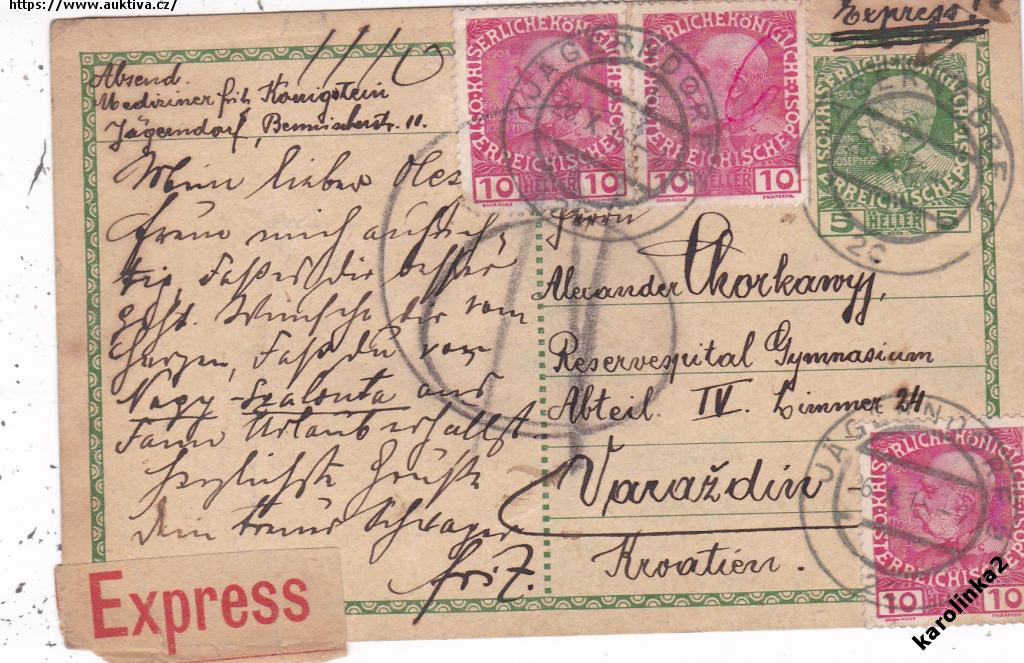 https://www.auktiva.cz/
Express!
Absend.
Mediziner fritz Königstein
Jägerndorf, Bennischerstr. 11.
Mein lieber
freue mich aufrich-
tig, daß es dir besser
geht. Wünsche dir vom
Herzen, daß du von
Nagy-Szalonta aus
dann Urlaub erhältst.
Herzlichste Grüße
dein treuer Schwager
Fritz.
KAISERLICHE KÖNIGLICHE
ÖSTERREICHISCHE POST
10 HELLER 10
10 HELLER 10
5 HELLER 5
JÄGERNDORF
Herrn
Alexander Chorkawyj,
Reservespital Gymnasium
Abteil. IV. Zimmer 24
Varaždin
Kroatien.
JÄGERNDORF
10 HELLER 10
Express
karolinka2